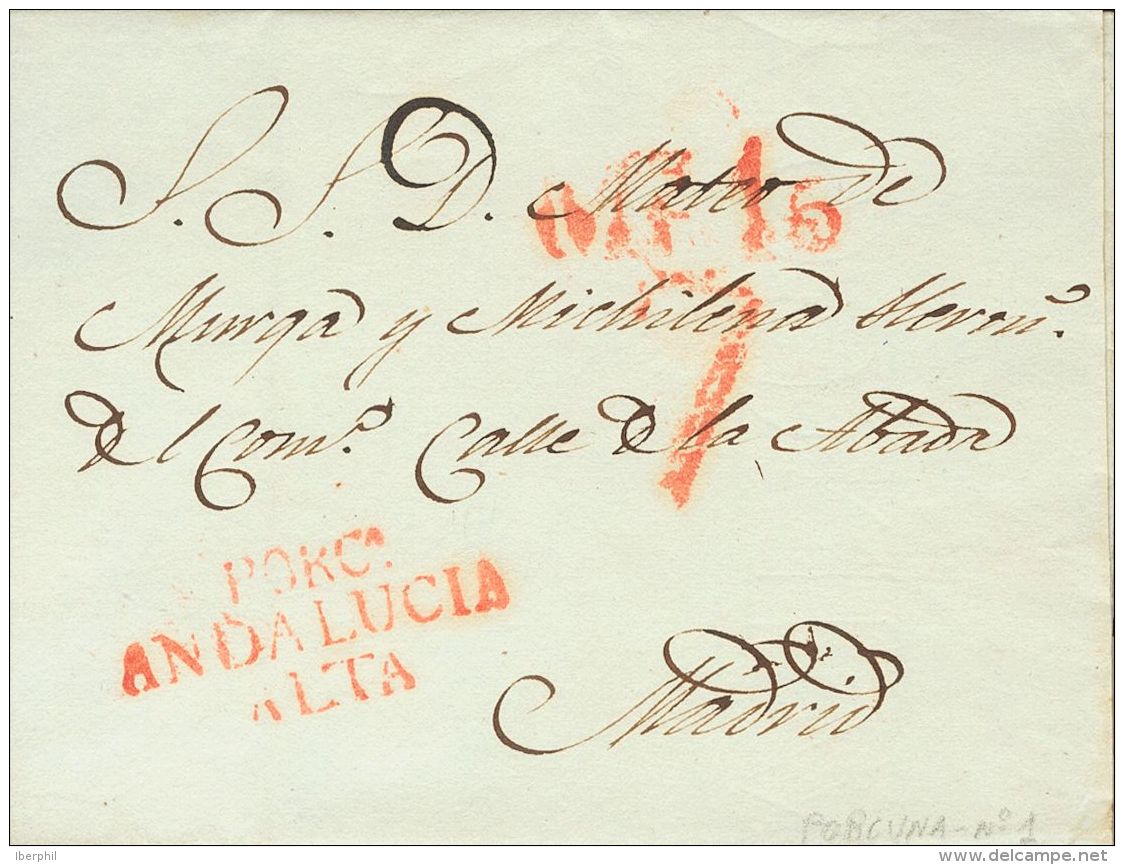 S. S. D. Mateo de
Murga y Michilena Herm.ˢ
del Com.º Calle de la Abada
PORC.ª
ANDALUCIA
ALTA
Madrid
PORCUNA - Nº 1
Iberphil
www.delcampe.net